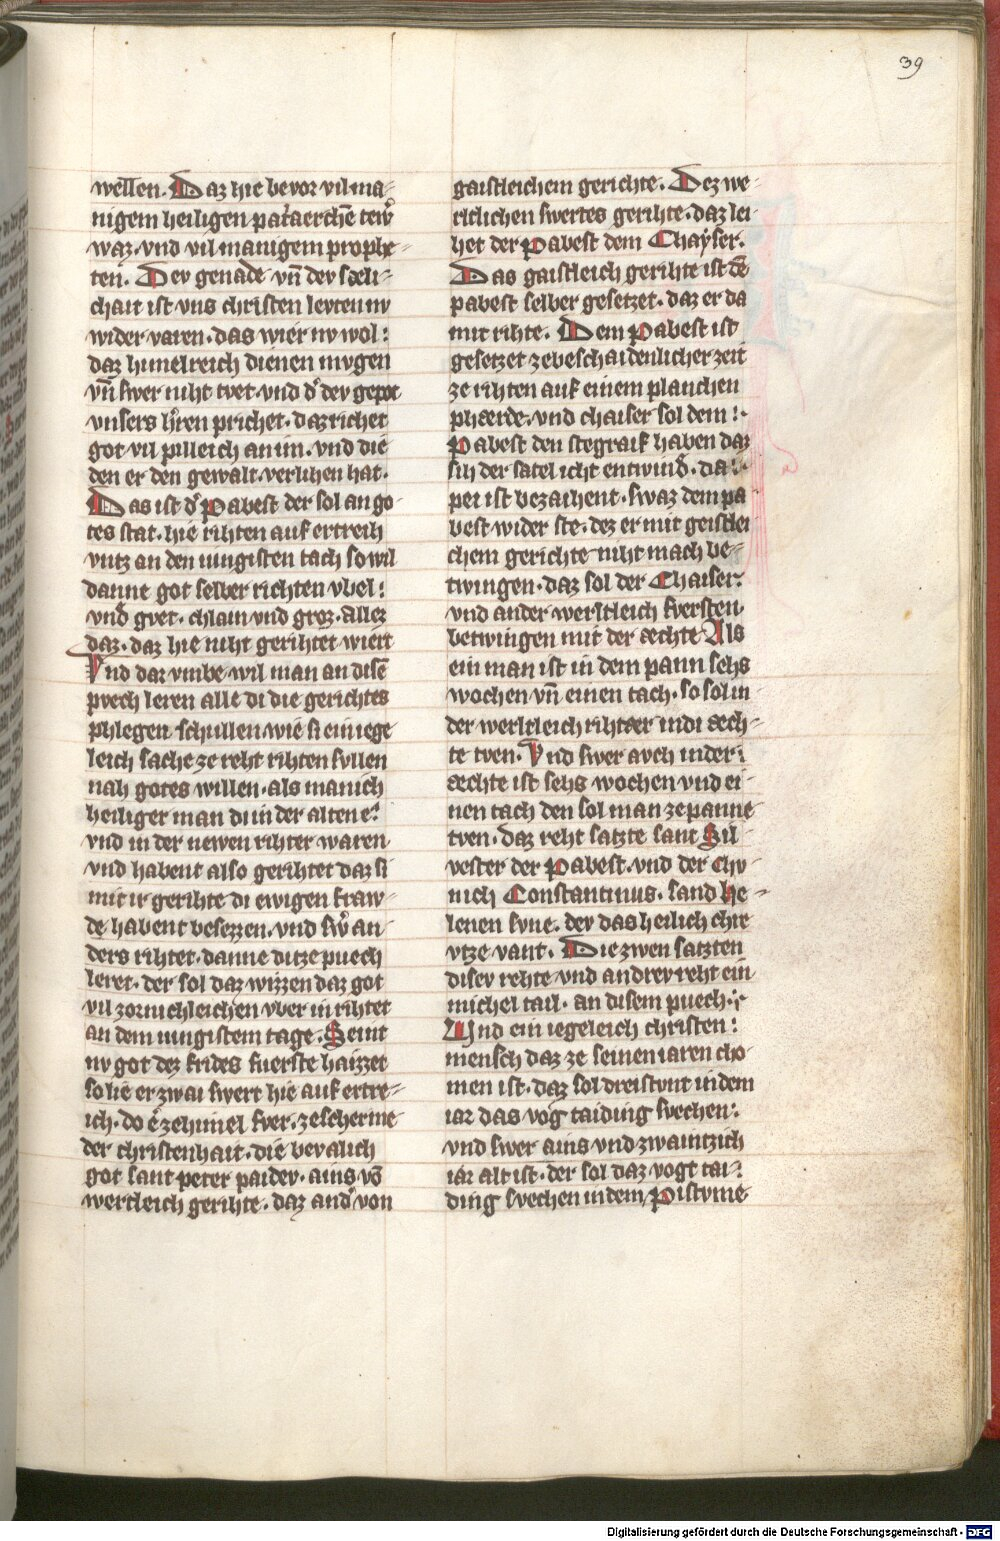 39
wellen. Daz hie bevor vil ma-
nigem heiligen patͬaerchē tewͬ
waz. vnd vil manigem prophe-
ten. Der genade vn̄ der sæli-
chait ist vns christen levten nv
wider varen. das wier nv wol:
daz himelreich dienen mvgen
vn̄ swer niht tvet. vnd dͬ der gepot
vnsers hͬren prichet. daz richet
got vil pilleich an im. vnd die
den er den gewalt. verlihen hat.
Das ist dͬ Pabest der sol an go-
tes stat. hie rihten auf ertreih
vntz an den iungisten tach so wil
danne got selber richten vbel:
vndͬ gvet. chlain vnd groz. allez
daz. daz hie niht gerihtet wiert
Vnd dar vmbe wil man an disē
pvech leren alle di die gerichtes
phlegen schullen wie si ein iege
leich sache ze reht rihten svllen
nah gotes willen. als manich
heiliger man di in der alten e:
vnd in der newen rihter waren
vnd habent also gerihtet daz si
mit ir gerihte di ewigen fraw-
de habent besezzen. vnd swͬ an-
ders rihtet. danne ditze puech
leret. der sol daz wizzen daz got
vil zornichleichen vber in rihtet
an dem iungistem tage. Seint
nv got dez frides fuerste haizzet
so lie er zwai swert hie auf ertre-
ich. do er ze himel fver. ze scherme
der christenhait. die bevalich
got sant peter paidev. ains vō
wertleich gerihte. daz andͬ von
gaistleichem gerichte. Dez we-
rltlichen swertes gerihte. daz lei-
het der Pabest dem Chayser.
Das gaistleich gerihte ist dē
pabest selber gesetzet. daz er da
mit rihte. Dem Pabest ist
gesetzet ze beschaidenlicher zeit
ze rihten auf einem planchen
phærde. vnd chaiser sol dem:
Pabest den stegraif haben daz
sih der satel icht entwindͬ. da
pei ist bezaihent. swaz dem pa
best wider ste. dez er mit geistlei
chem gerichte niht mach be-
twingen. daz sol der Chaiser.
vnd ander werltleich fversten
betwingen mit der aechte Als
ein man ist in dem pann sehs
wochen vn̄ einen tach. so sol in
der werltleich rihtær in di aech-
te tven. Vnd swer avch in der:
aechte ist sehs wochen vnd ei-
nen tach den sol man ze panne
tven. daz reht satzte sant Sil-
vester der Pabest. vnd der chv-
nich Constantinus. sand he-
lenen svne. der das heilich chre
vtze vant. Die zwen satzten
disev rehte vnd andrev reht ein
michel tail. an disem puech.
Und ein iegeleich christen:
mensch daz ze seinen iaren cho-
men ist. daz sol dreistvnt in dem
iar das vogͬ taiding svechen:
vnd swer ains vnd zwaintzich
iar alt ist. der sol daz vogt tai:
ding svechen in dem Pistvme
Digitalisierung gefördert durch die Deutsche Forschungsgemeinschaft - DFG